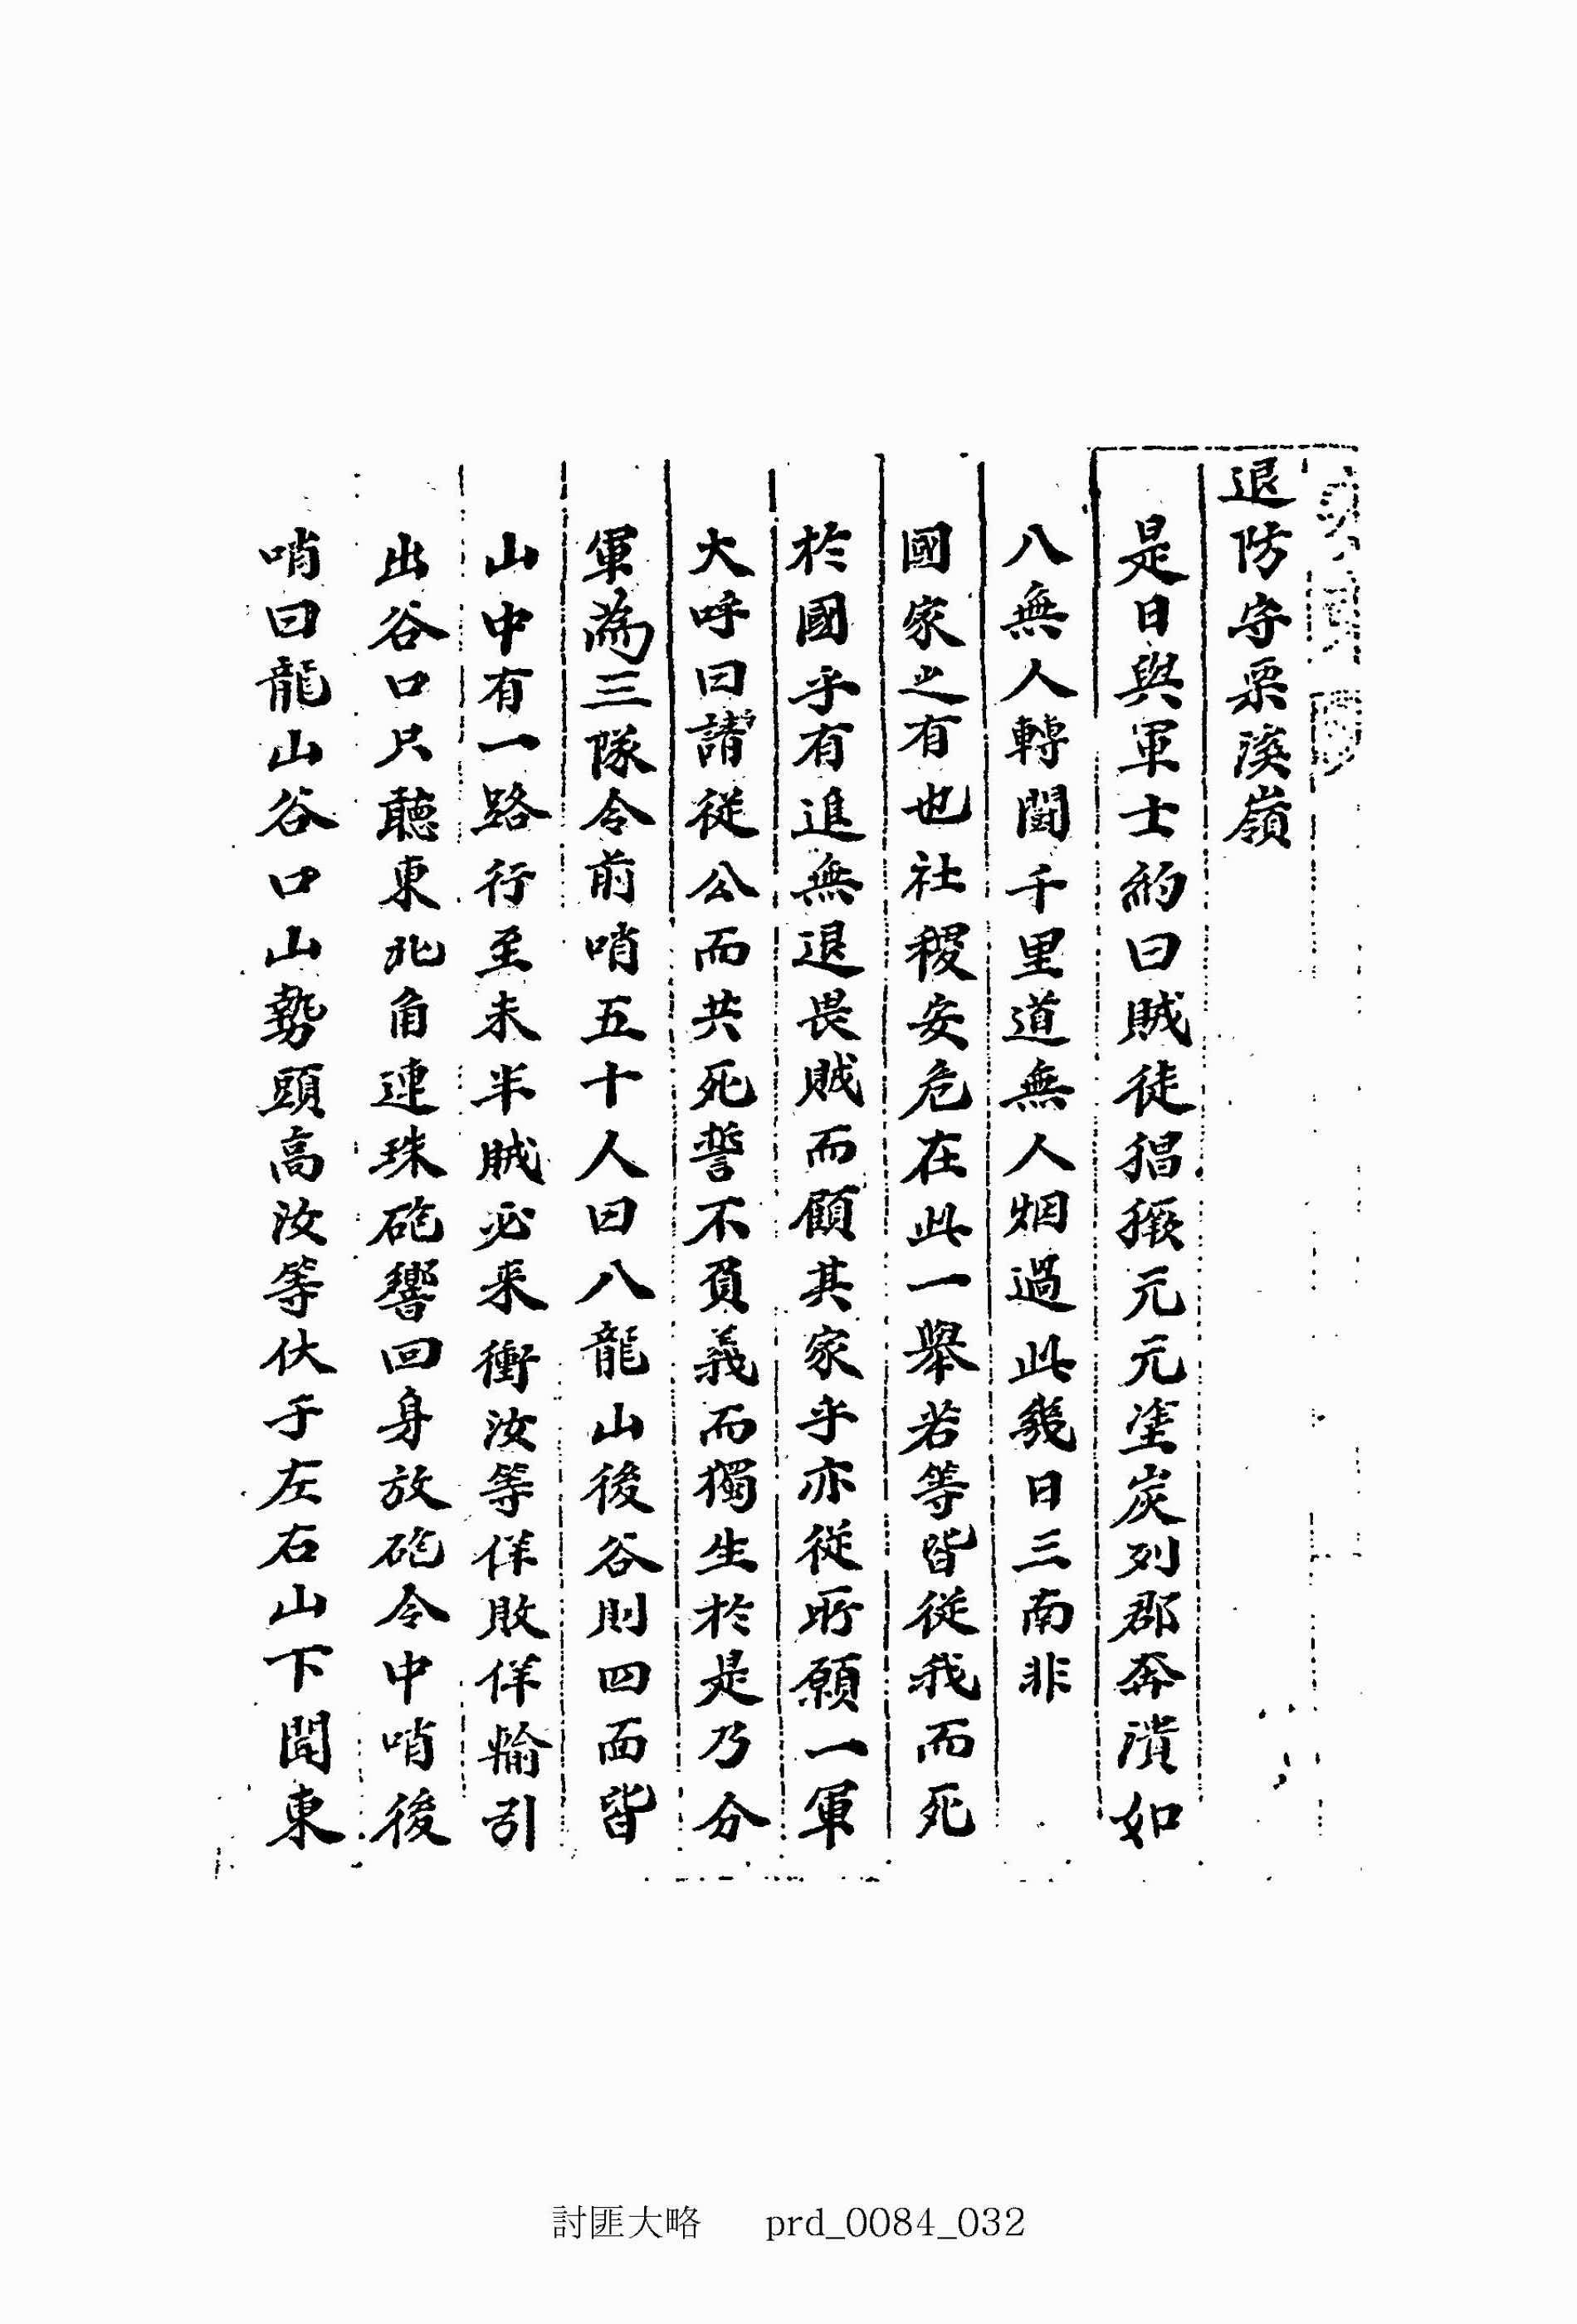 退防守栗溪嶺
是日與軍士約曰賊徒猖獗元元塗炭列郡奔潰如
八無人轉鬪千里道無人烟過此幾日三南非
國家之有也社稷安危在此一擧若等皆從我而死
於國乎有進無退畏賊而顧其家乎亦從所願一軍
大呼曰請從公而共死誓不負義而獨生於是乃分
軍為三隊令前哨五十人曰八龍山後谷則四面皆
山中有一路行至未半賊必來衝汝等佯敗佯輸引
出谷口只聽東北角連珠砲響回身放砲令中哨後
哨曰龍山谷口山勢頭高汝等伏于左右山下聞東
討匪大略 prd_0084_032